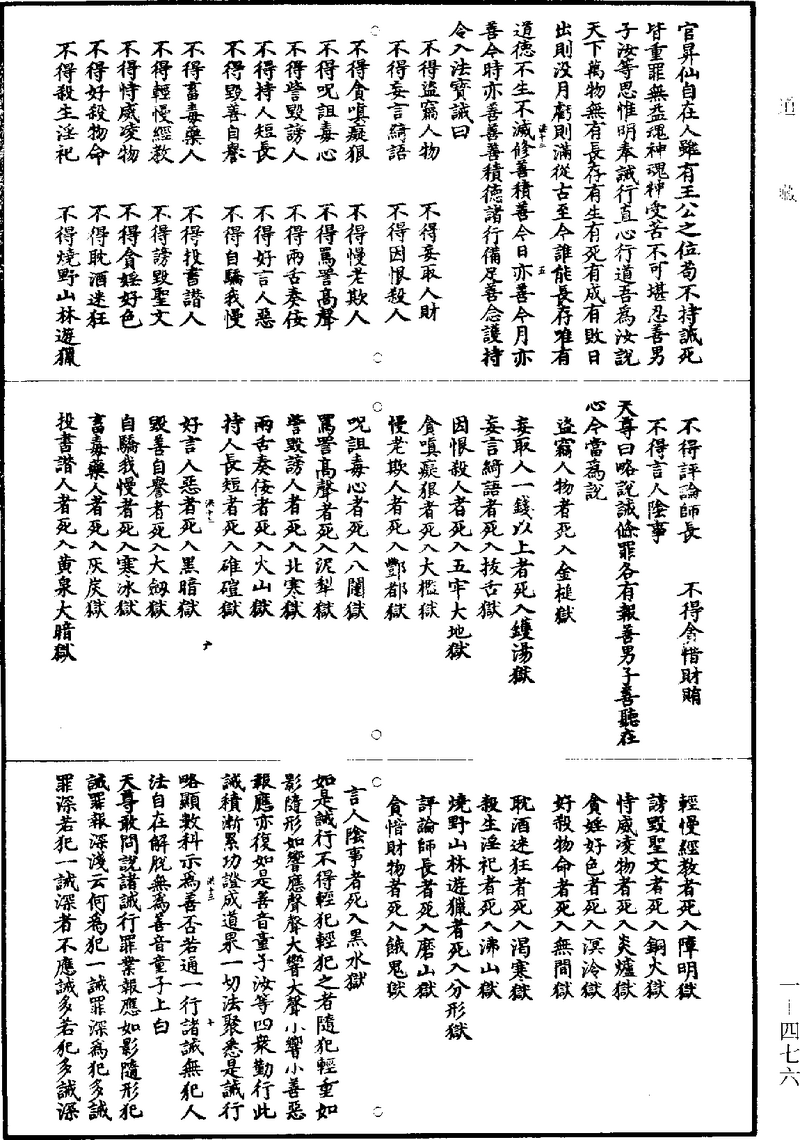 官昇仙自在人雖有王公之位苟不持誡死
皆重罪無益魂神魂神受苦不可堪忍善男
子汝等思惟明奉誡行直心行道吾為汝說
天下萬物無有長存有生有死有成有敗日
出則没月虧則滿從古至今誰能長存唯有
道德不生不滅修善積善今日亦善今月亦
善今時亦善善善積德諸行備足善念護持
令入法寶誡曰
不得盜竊人物 不得妄取人財
不得妄言綺語 不得因恨殺人
不得貪嗔癡狠 不得慢老欺人
不得呪詛毒心 不得罵詈高聲
不得訾毀謗人 不得兩舌奏佞
不得持人短長 不得好言人惡
不得毀善自譽 不得自驕我慢
不得畜毒藥人 不得投書譖人
不得輕慢經教 不得謗毀聖文
不得恃威凌物 不得貪婬好色
不得好殺物命 不得耽酒迷狂
不得殺生淫祀 不得燒野山林遊獵
不得評論師長 不得貪惜財賄
不得言人陰事
天尊曰略說誡條罪各有報善男子善聽在
心今當為說
盜竊人物者死入金槌獄
妄取人一錢以上者死入鑊湯獄
妄言綺語者死入拔舌獄
因恨殺人者死入五牢大地獄
貪嗔癡狠者死入大檻獄
慢老欺人者死入酆都獄
呪詛毒心者死入八闇獄
罵詈高聲者死入泥犁獄
訾毀謗人者死入北寒獄
兩舌奏佞者死入火山獄
持人長短者死入碓磑獄
好言人惡者死入黑暗獄
毀善自譽者死入大劔獄
自驕我慢者死入寒冰獄
畜毒藥人者死入灰炭獄
投書譖人者死入黄泉大暗獄
輕慢經教者死入障明獄
謗毀聖文者死入銅火獄
恃威凌物者死入炎爐獄
貪婬好色者死入溟泠獄
好殺物命者死入無間獄
耽酒迷狂者死入渴寒獄
殺生淫祀者死入沸山獄
燒野山林遊獵者死入分形獄
評論師長者死入磨山獄
貪惜財物者死入餓鬼獄
言人陰事者死入黑水獄
如是誡行不得輕犯輕犯之者隨犯輕重如
影隨形如響應聲聲大響大聲小響小善惡
報應亦復如是善音童子汝等四衆勤行此
誡積漸累功證成道果一切法聚悉是誡行
略顯數科示為善否若通一行諸誡無犯人
法自在解脫無為善音童子上白
天尊敢問說諸誡行罪業報應如影隨形犯
誡罪報深淺云何為犯一誡罪深為犯多誡
罪深若犯一誡深者不應誡多若犯多誡深
道藏
一—四七六